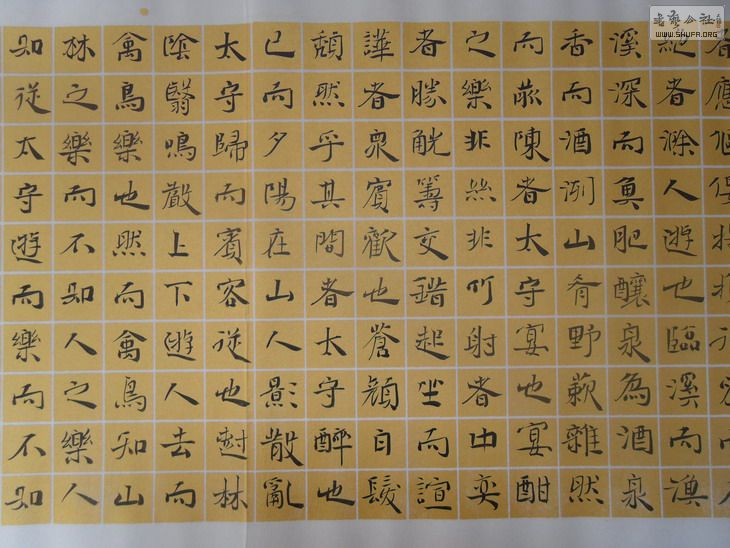 者應
絕者滁人遊也臨溪而漁
溪深而魚肥釀泉為酒泉
香而酒洌山肴野蔌雜然
而前陳者太守宴也宴酣
之樂非絲非竹射者中奕
者勝觥籌交錯起坐而諠
譁者衆賓歡也蒼顏白髮
頹然乎其間者太守醉也
已而夕陽在山人影散亂
太守歸而賓客從也樹林
陰翳鳴聲上下遊人去而
禽鳥樂也然而禽鳥知山
林之樂而不知人之樂人
知從太守遊而樂而不知
WWW.SHUFA.ORG